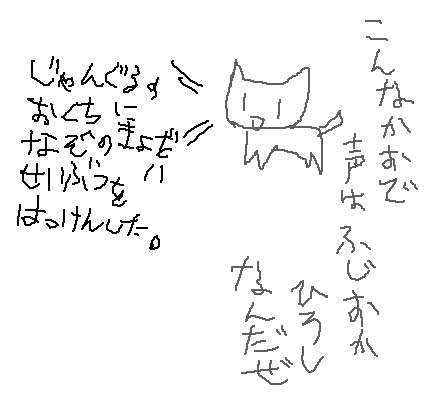 こんなかおで
声はふじおか
ひろし
なんだぜ
じゃんぐるの
おくちに
なぞのきょだい
せいぶつを
はっけんした。